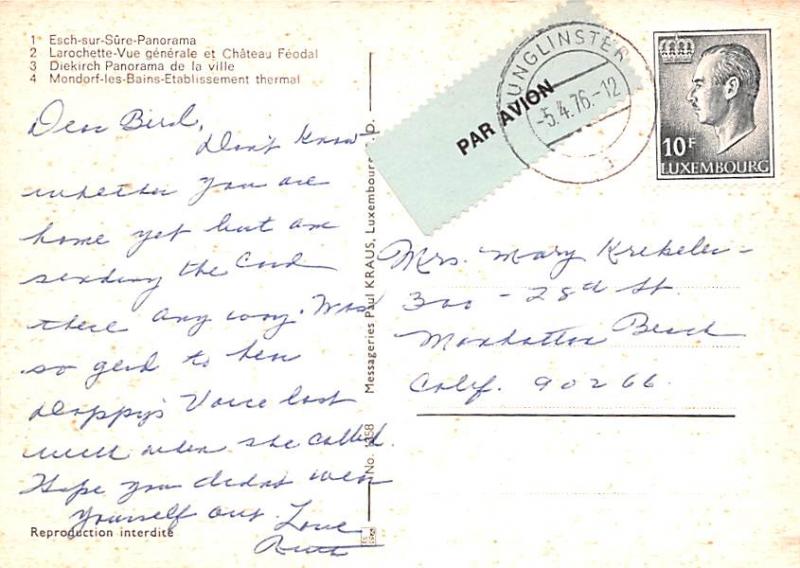 1 Esch-sur-Sûre-Panorama
2 Larochette-Vue générale et Château Féodal
3 Diekirch Panorama de la ville
4 Mondorf-les-Bains-Etablissement thermal
Dear Bird,
Don't know
whether you are
home yet but am
sending the Card
there any way. Was
so glad to hear
Voice last
week when she called.
Hope you didn't wear
yourself out. Love
Ruth
Reproduction interdite
Messageries Paul KRAUS, Luxembourg
PAR AVION
JUNGLINSTER
-5.4.76.-12
10F
LUXEMBOURG
Mrs. Mary Krekeler
300 - 28th St.
Manhattan Beach
Calif. 90266